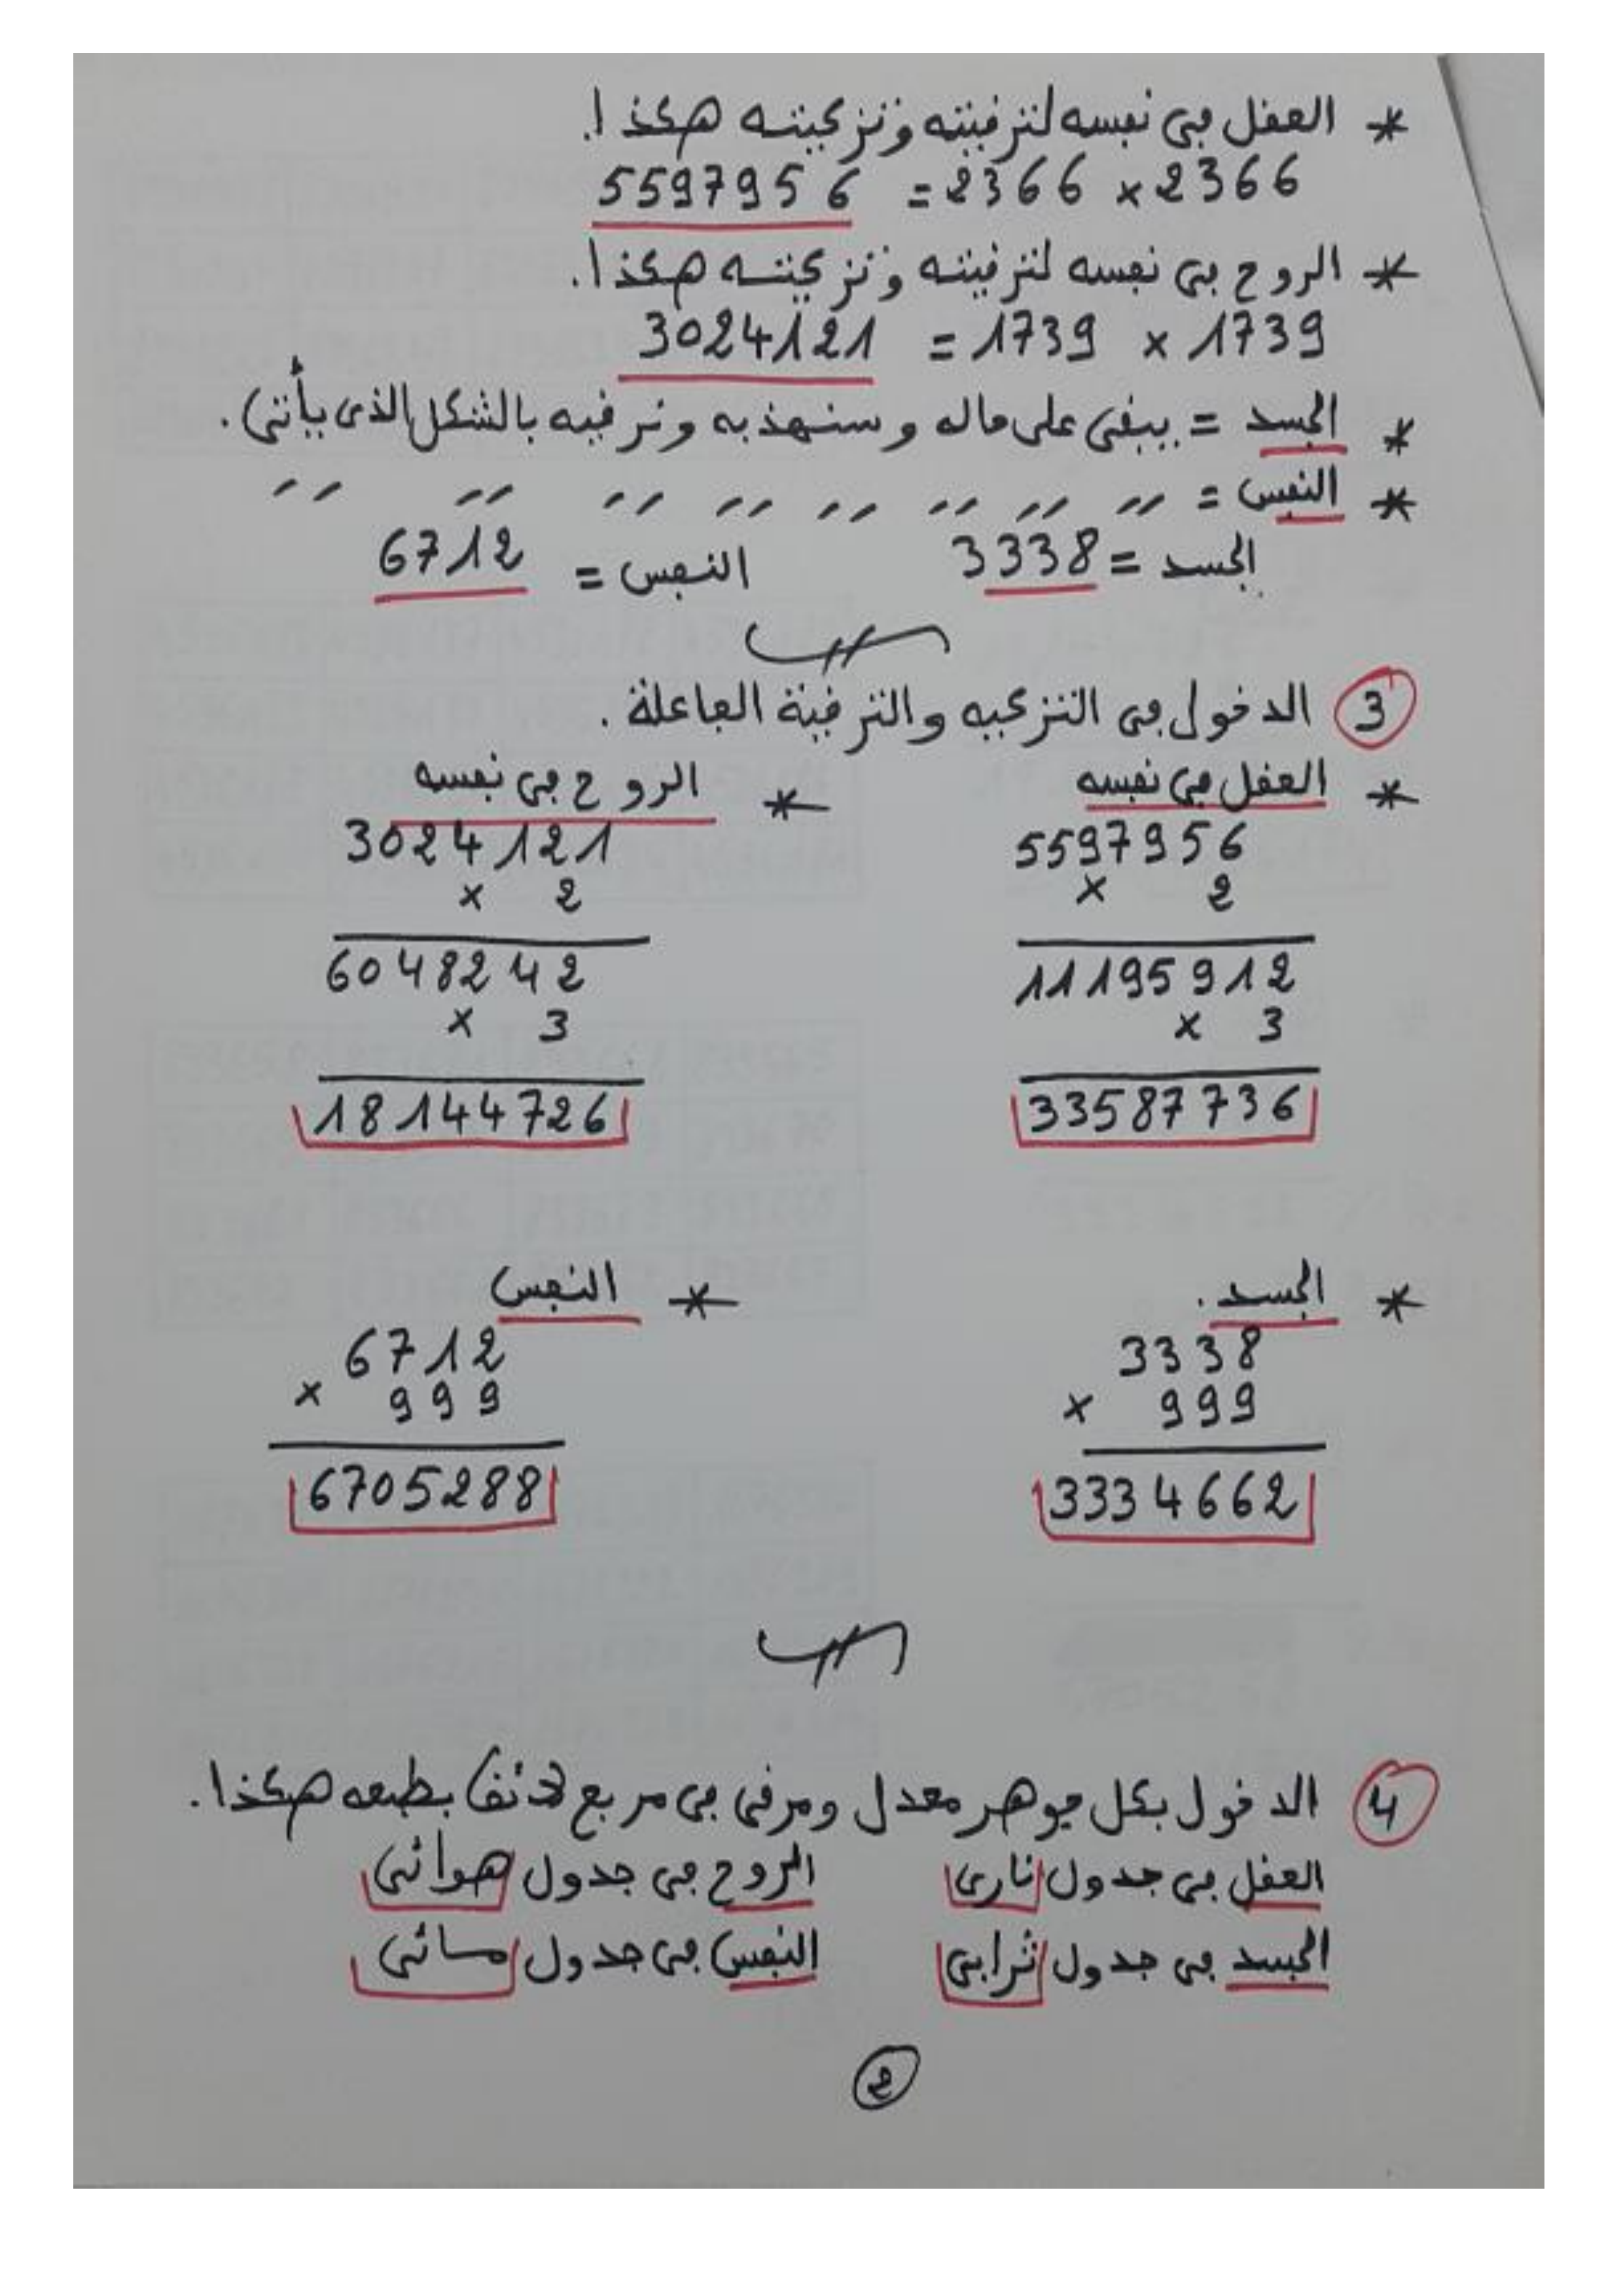 * العقل في نفسه لترقيته وتزكيته هكذا.
2366 × 2366 = 5597956
* الروح في نفسه لترقيته وتزكيته هكذا.
1739 × 1739 = 3024121
* الجسد = يبقى على ماله وسنهذبه ونرقيه بالشكل الذي يأتي.
* النفس = 〃 〃 〃 〃 〃 〃 〃 〃
الجسد = 3338 النفس = 6712
3 الدخول في التزكية والترقية الفاعلة.
* العقل في نفسه
5597956
× 2
11195912
× 3
33587736
* الروح في نفسه
3024121
× 2
6048242
× 3
18144726
* الجسد.
3338
× 999
3334662
* النفس
6712
× 999
6705288
4 الدخول بكل جوهر معدل ومرقى في مربع لائق بطبعه هكذا.
العقل في جدول ناري الروح في جدول هوائي
الجسد في جدول ترابي النفس في جدول مائي
2